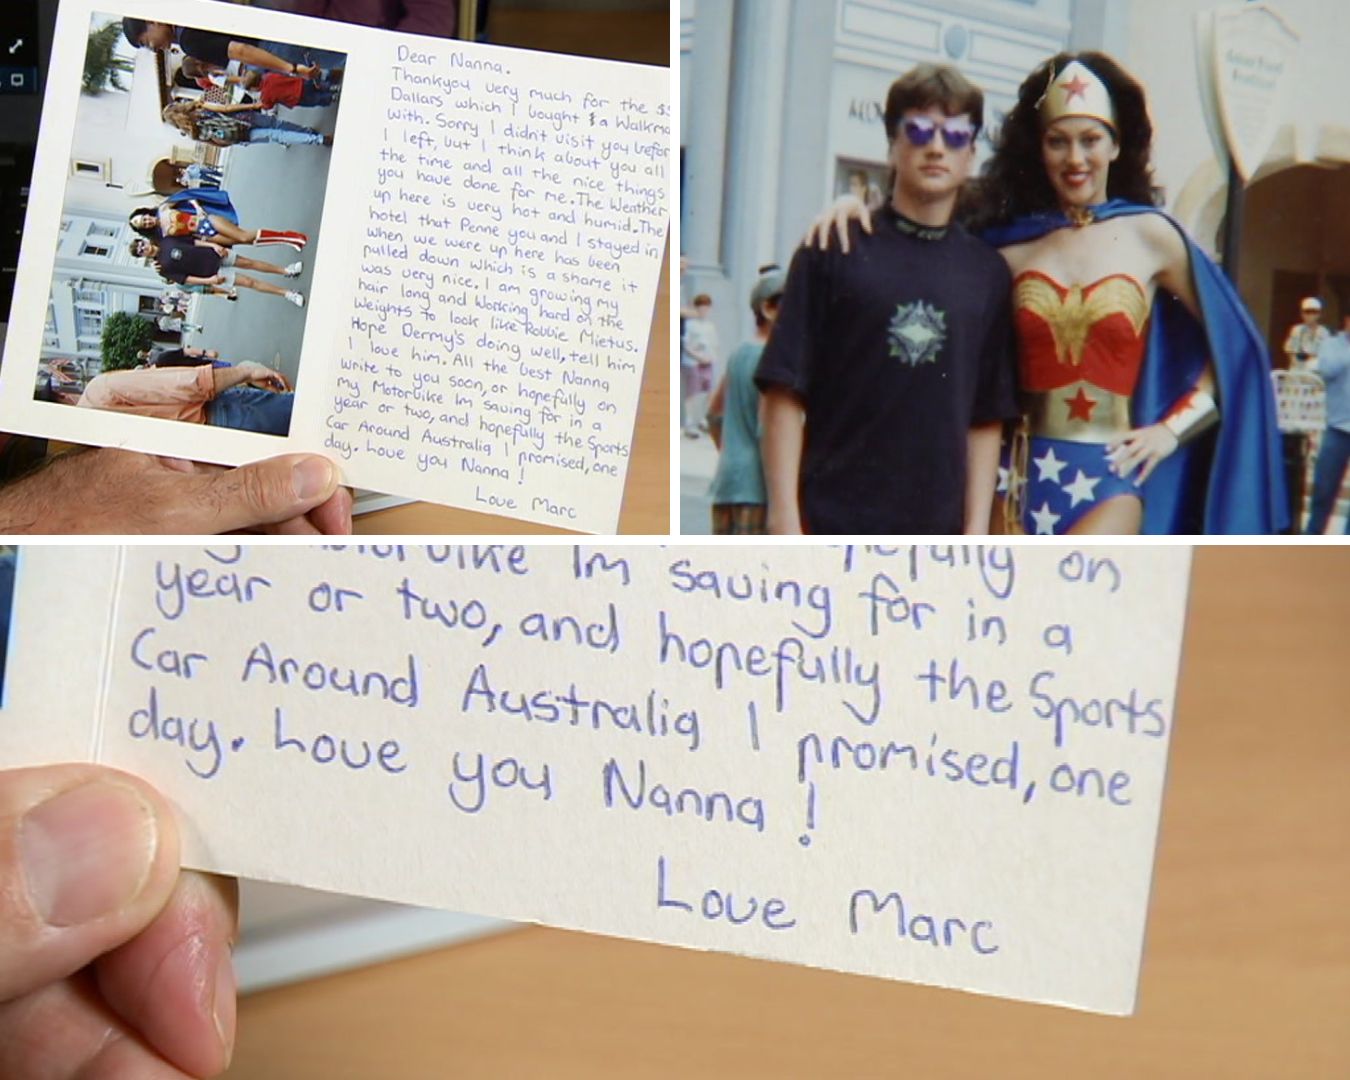 Dear Nanna.
Thankyou very much for the
Dollars which I bought a
with. Sorry I didn't visit you
I left, but I think about you all
the time and all the nice things
you have done for me. The Weather
up here is very hot and humid. The
hotel that Penne you and I stayed in
when we were up here has been
pulled down which is a shame it
was very nice. I am growing my
hair long and Working hard on the
Weights To look like Robbie Mietus.
Hope Dermy's doing well, tell him
I love him. All the best Nanna
write to you soon, or hopefully on
my Motorbike Im saving for in a
year or two, and hopefully the Sports
Car Around Australia I promised, one
day. Love you Nanna!
Love Marc
hopefully on
Motorbike Im saving for in a
year or two, and hopefully the Sports
Car Around Australia I promised, one
day. Love you Nanna!
Love Marc